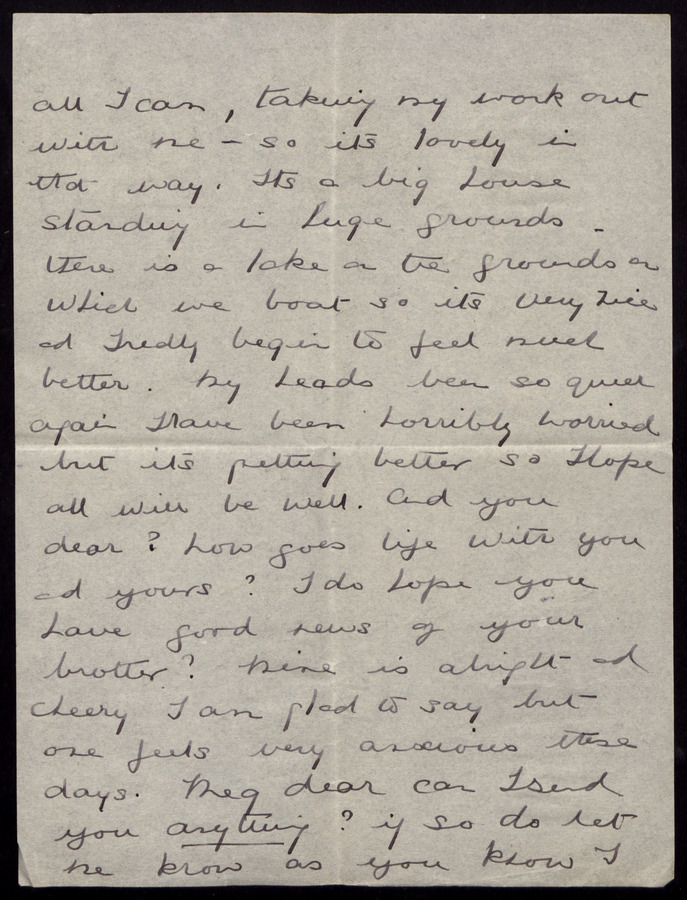 all I can, taking my work out
with me - so its lovely in
that way. Its a big house
standing in huge grounds -
there is a lake in the grounds on
which we boat so its very nice
and I really begin to feel much
better. My heads been so queer
again I have been horribly worried
but its getting better so I hope
all will be well. And you
dear? how goes life with you
and yours? I do hope you
have good news of your
brother? Mine is alright and
cheery I am glad to say but
one feels very anxious these
days. Meg dear can I send
you anything? if so do let
me know as you know I